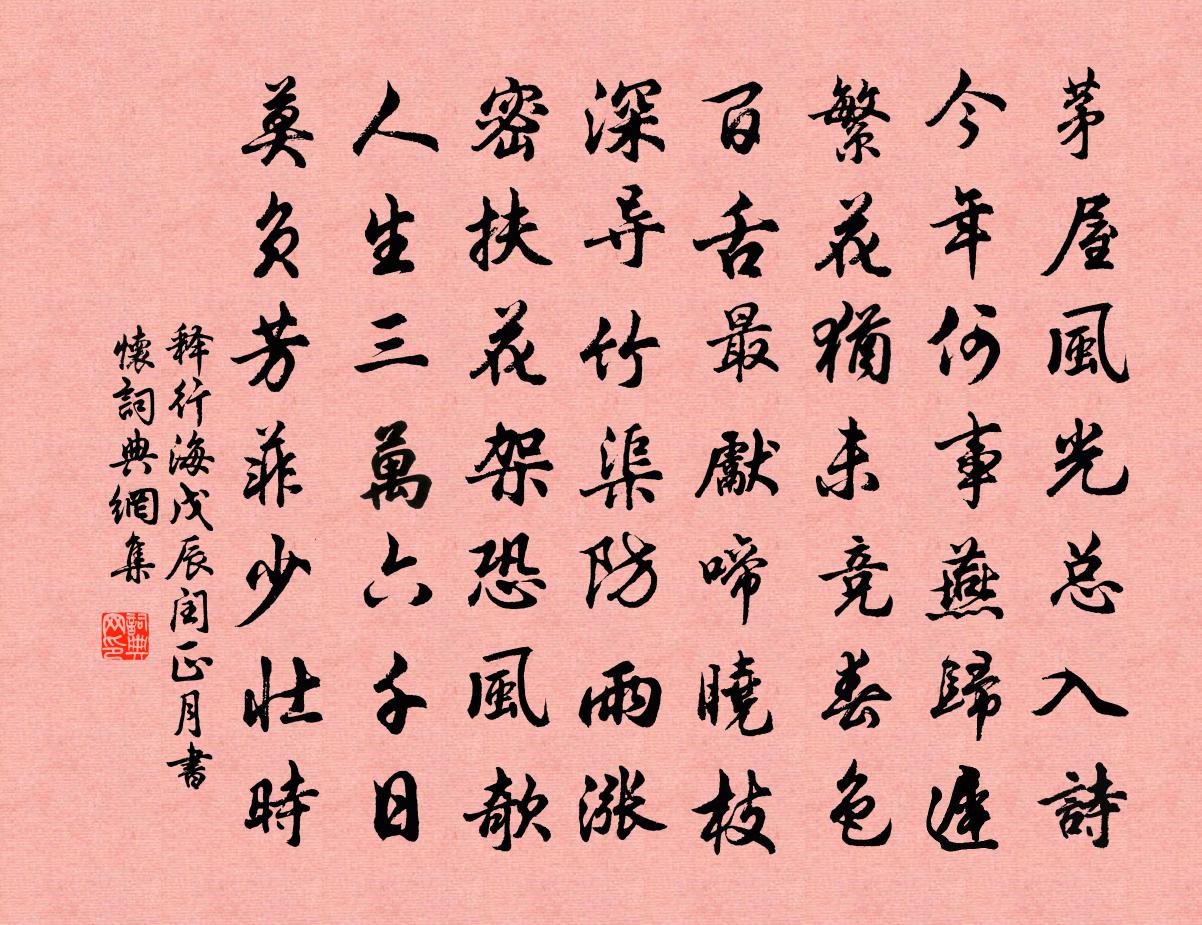 茅屋風光总入詩
今年何事燕歸遲
繁花猶未竞春色
百舌最獻啼曉枝
深导竹渠防雨漲
密扶花架恐風欹
人生三萬六千日
莫負芳菲少壮時
释行海戊辰闰正月書
懷詞典網集
詞典网印